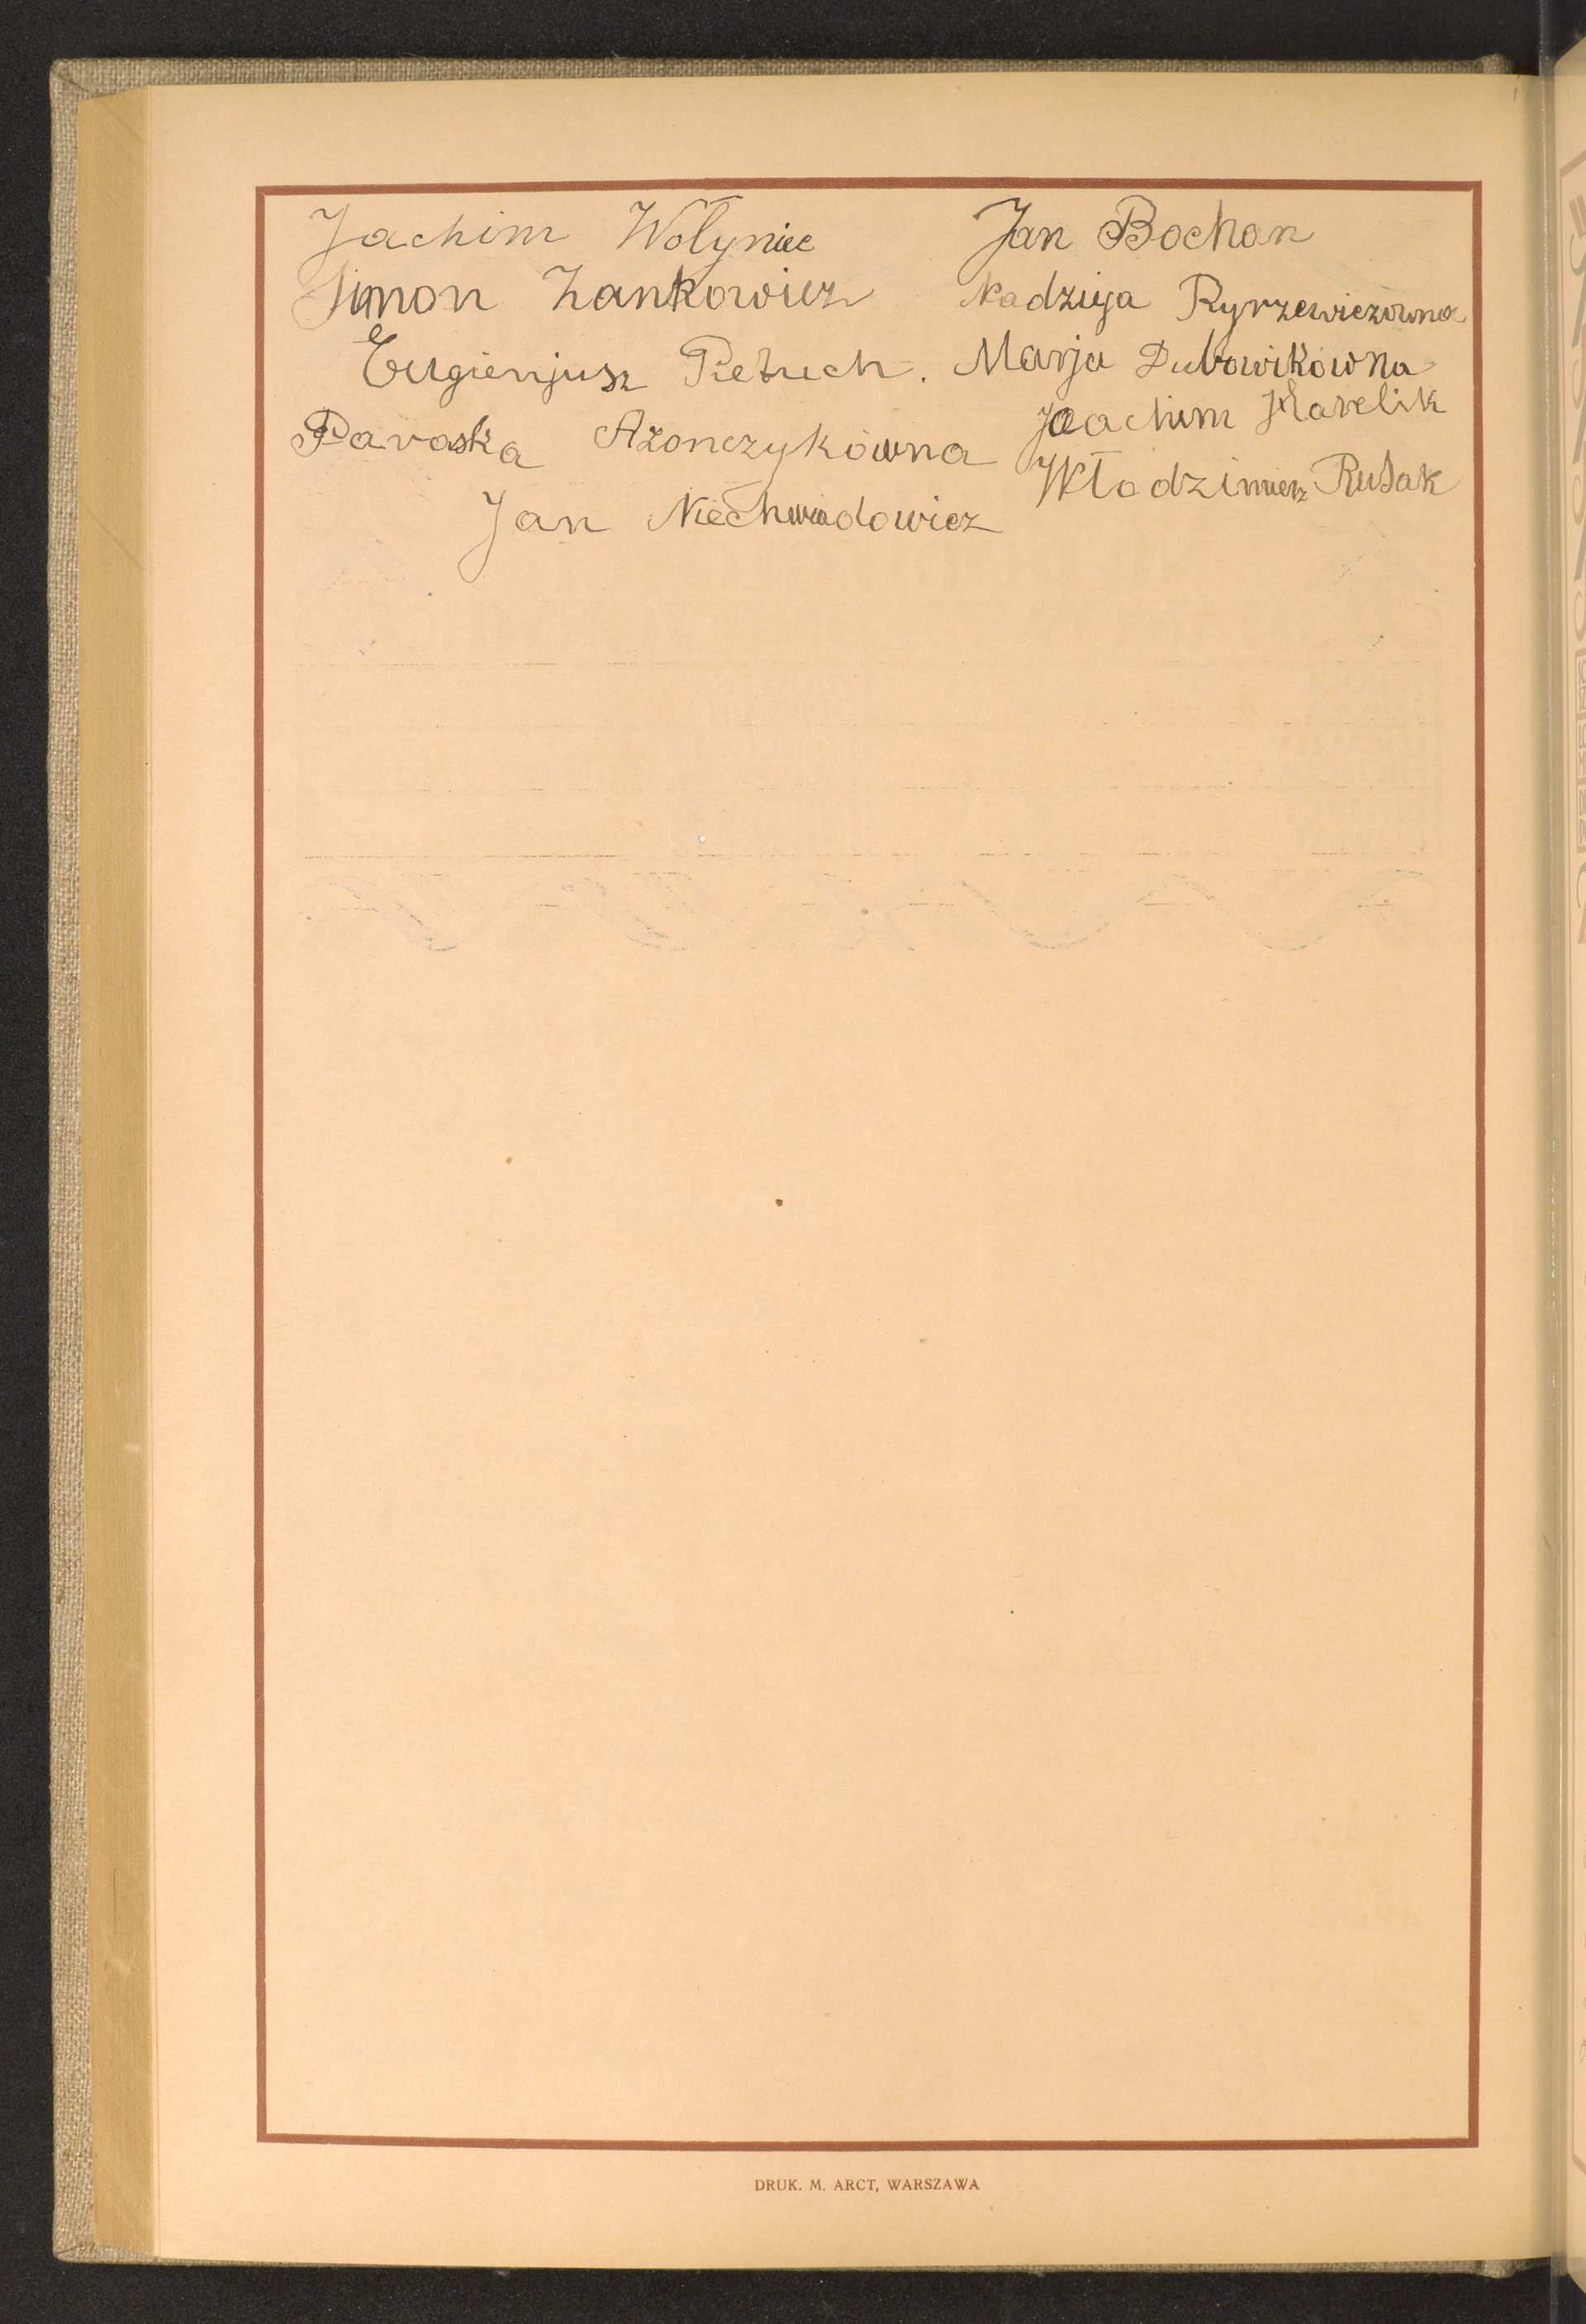 Jachim Wołyniec Jan Bochan
Simon Zankowicz Nadzieja Ryrzewiczówna
Eugienjusz Pietuch. Marja Dubowikówna
Paraska Ażonczykówna Joachim Hawrelik
Jan Niechwiadowicz Włodzimierz Rusak
DRUK. M. ARCT, WARSZAWA